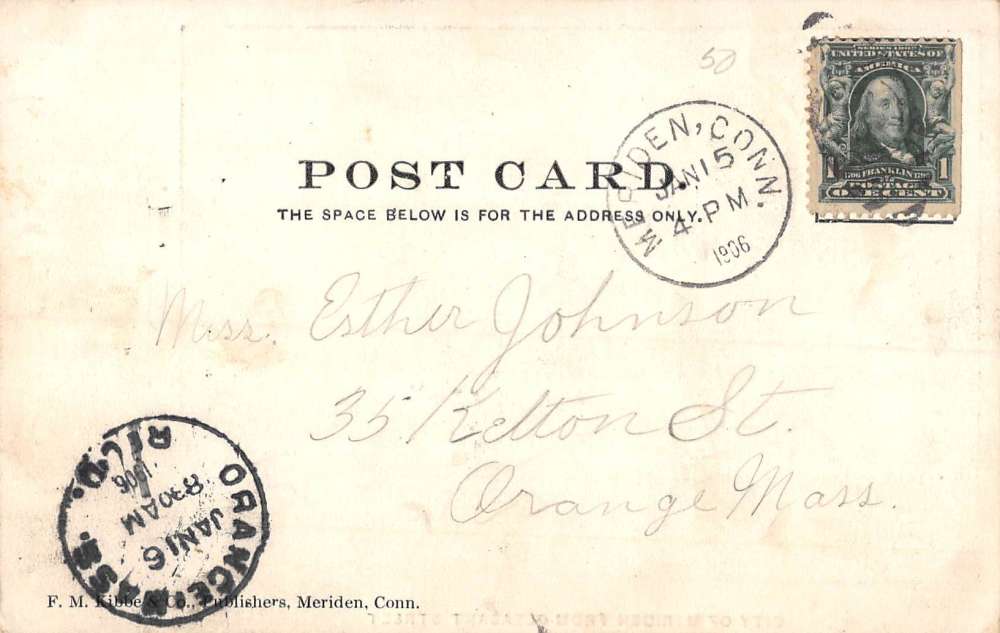 50
SERIES 1902
UNITED STATES OF
AMERICA
1 FRANKLIN 1
POSTAGE
ONE CENT
MERIDEN, CONN.
JAN 15
4-PM
1906
POST CARD.
THE SPACE BELOW IS FOR THE ADDRESS ONLY.
Miss. Esther Johnson
35 Kelton St.
Orange Mass.
ORANGE, MASS.
JAN 16
830AM
1906
REC'D.
F. M. Kibbe & Co., Publishers, Meriden, Conn.